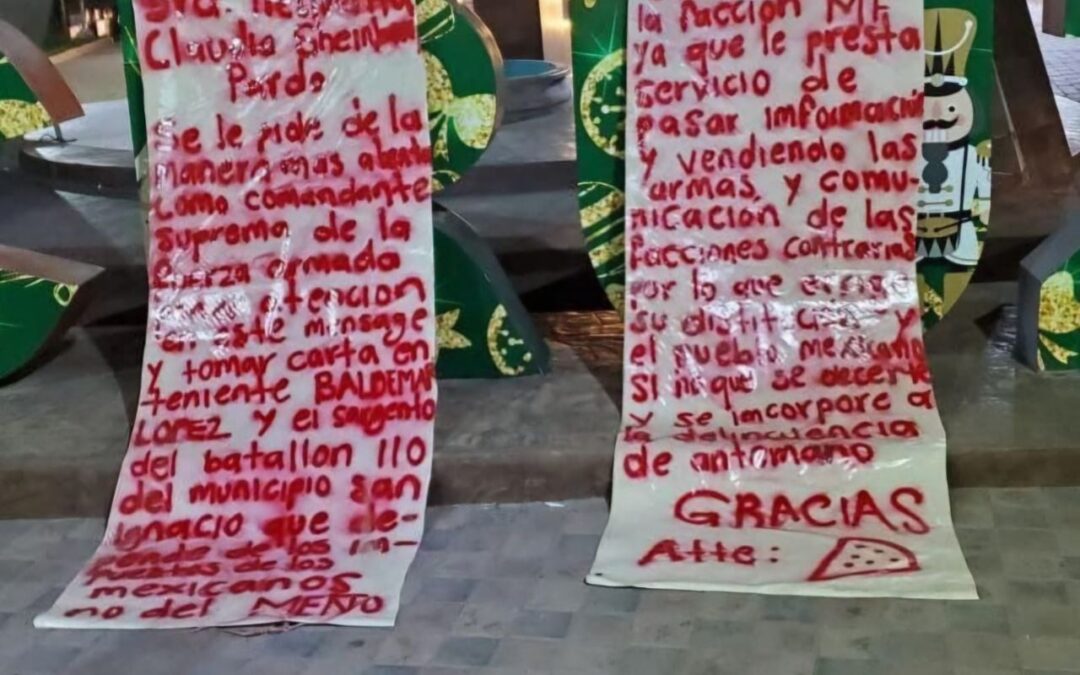 Sra.
Claudia Sheinbaum
Pardo
Se le pide de la
manera mas atenta
como comandante
suprema de la
fuerza armada
atencion
en este mensage
y tomar carta en
teniente BALDEMAR
LOPEZ y el sargento
del batallon 110
del municipio san
ignacio que de-
pende de los im-
puestos de los
mexicanos
no del MENTO
la facción MF
ya que le presta
servicio de
pasar imformación
y vendiendo las
armas, y comu-
nicación de las
facciones contrarias
por lo que exige
su distitición y
el pueblo mexicano
SI no que se decerte
y se imcorpore a
la delincuencia
de antomano
GRACIAS
Atte: